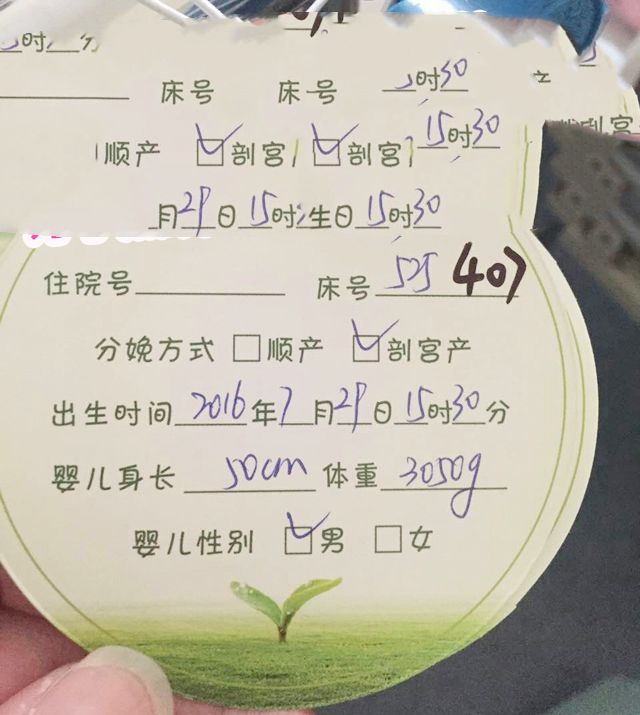 时 分
床号 床号 时30 产
顺产 ☑剖宫 ☑剖宫 15时30
月29日15时 生日15时30
住院号 床号 525 (40)
分娩方式 □顺产 ☑剖宫产
出生时间 2016年7月29日15时30分
婴儿身长 50cm 体重 3050g
婴儿性别 ☑男 □女